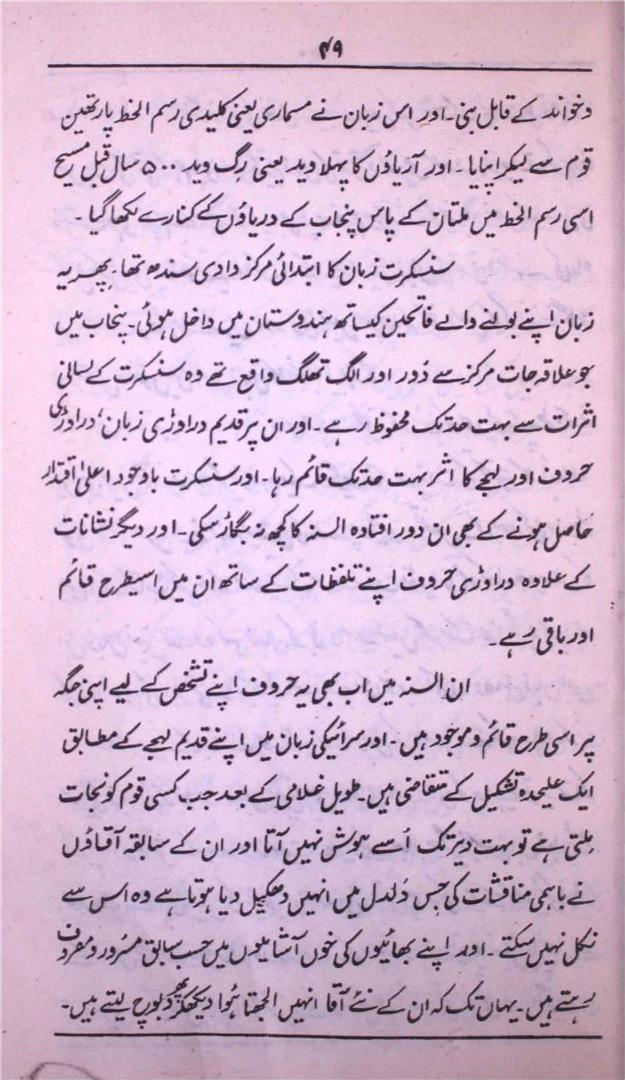 ۴۹
دخواند کے قابل بنی۔ اور اس زبان نے مسماری یعنی کلیدی رسم الخط پارتھین
قوم سے لیکر اپنایا۔ اور آریاؤں کا پہلا وید یعنی رگ وید ۵۰۰ سال قبل مسیح
اسی رسم الخط میں ملتان کے پاس پنجاب کے دریاؤں کے کنارے لکھا گیا۔
سنسکرت زبان کا ابتدائی مرکز وادی سندھ تھا۔ پھر یہ
زبان اپنے بولنے والے فاتحین کیساتھ ہندوستان میں داخل ہوئی۔ پنجاب میں
جو علاقہ جات مرکز سے دُور اور الگ تھلگ واقع تھے وہ سنسکرت کے لسانی
اثرات سے بہت حد تک محفوظ رہے۔ اور ان پر قدیم دراوڑی زبان، دراوڑی
حروف اور لہجے کا اثر بہت حد تک قائم رہا۔ اور سنسکرت باوجود اعلیٰ اقتدار
حاصل ہونے کے بھی ان دور افتادہ السنہ کا کچھ نہ بگاڑ سکی۔ اور دیگر نشانات
کے علاوہ دراوڑی حروف اپنے تلفظات کے ساتھ ان میں اسیطرح قائم
اور باقی رہے۔
ان السنہ میں اب بھی یہ حروف اپنے تشخص کے لیے اپنی جگہ
پر اسی طرح قائم و موجود ہیں۔ اور سرائیکی زبان میں اپنے قدیم لہجے کے مطابق
ایک علیحدہ تشکیل کے متقاضی ہیں۔ طویل غلامی کے بعد جب کسی قوم کو نجات
ملتی ہے تو بہت دیر تک اُسے ہوش نہیں آتا اور ان کے سابقہ آقاؤں
نے باہمی مناقشات کی جس دلدل میں انہیں دھکیل دیا ہوتا ہے وہ اس سے
نکل نہیں سکتے۔ اور اپنے بھائیوں کی خوں آشامیوں میں حسب سابق مسرور و مصروف
رہتے ہیں۔ یہاں تک کہ ان کے نئے آقا انہیں الجھتا ہُوا دیکھکر پھر دبوچ لیتے ہیں۔